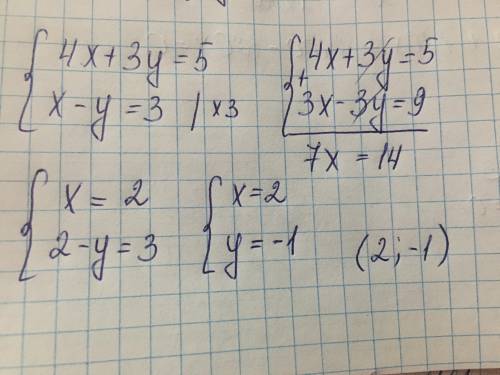 4x+3y=5
x-y=3 |x3
4x+3y=5
+
3x-3y=9
7x=14
x=2
2-y=3
x=2
y=-1
(2;-1)